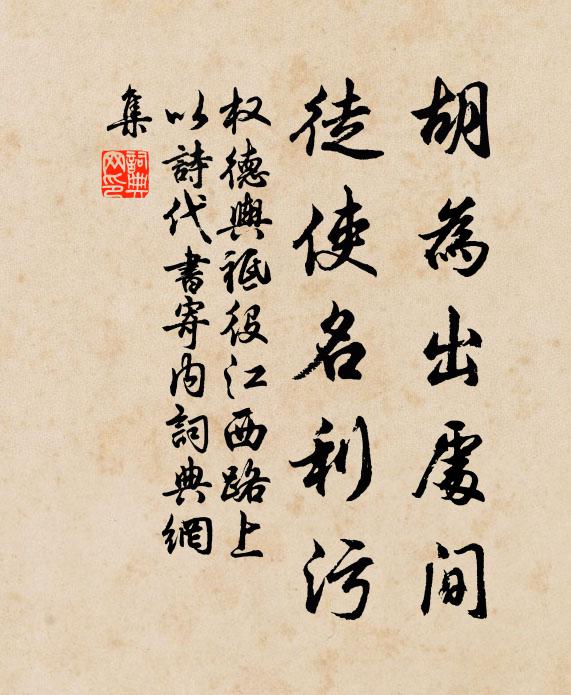 胡為出處間
徒使名利污
权德輿祗役江西路上
以詩代書寄内詞典網
集
詞典網印